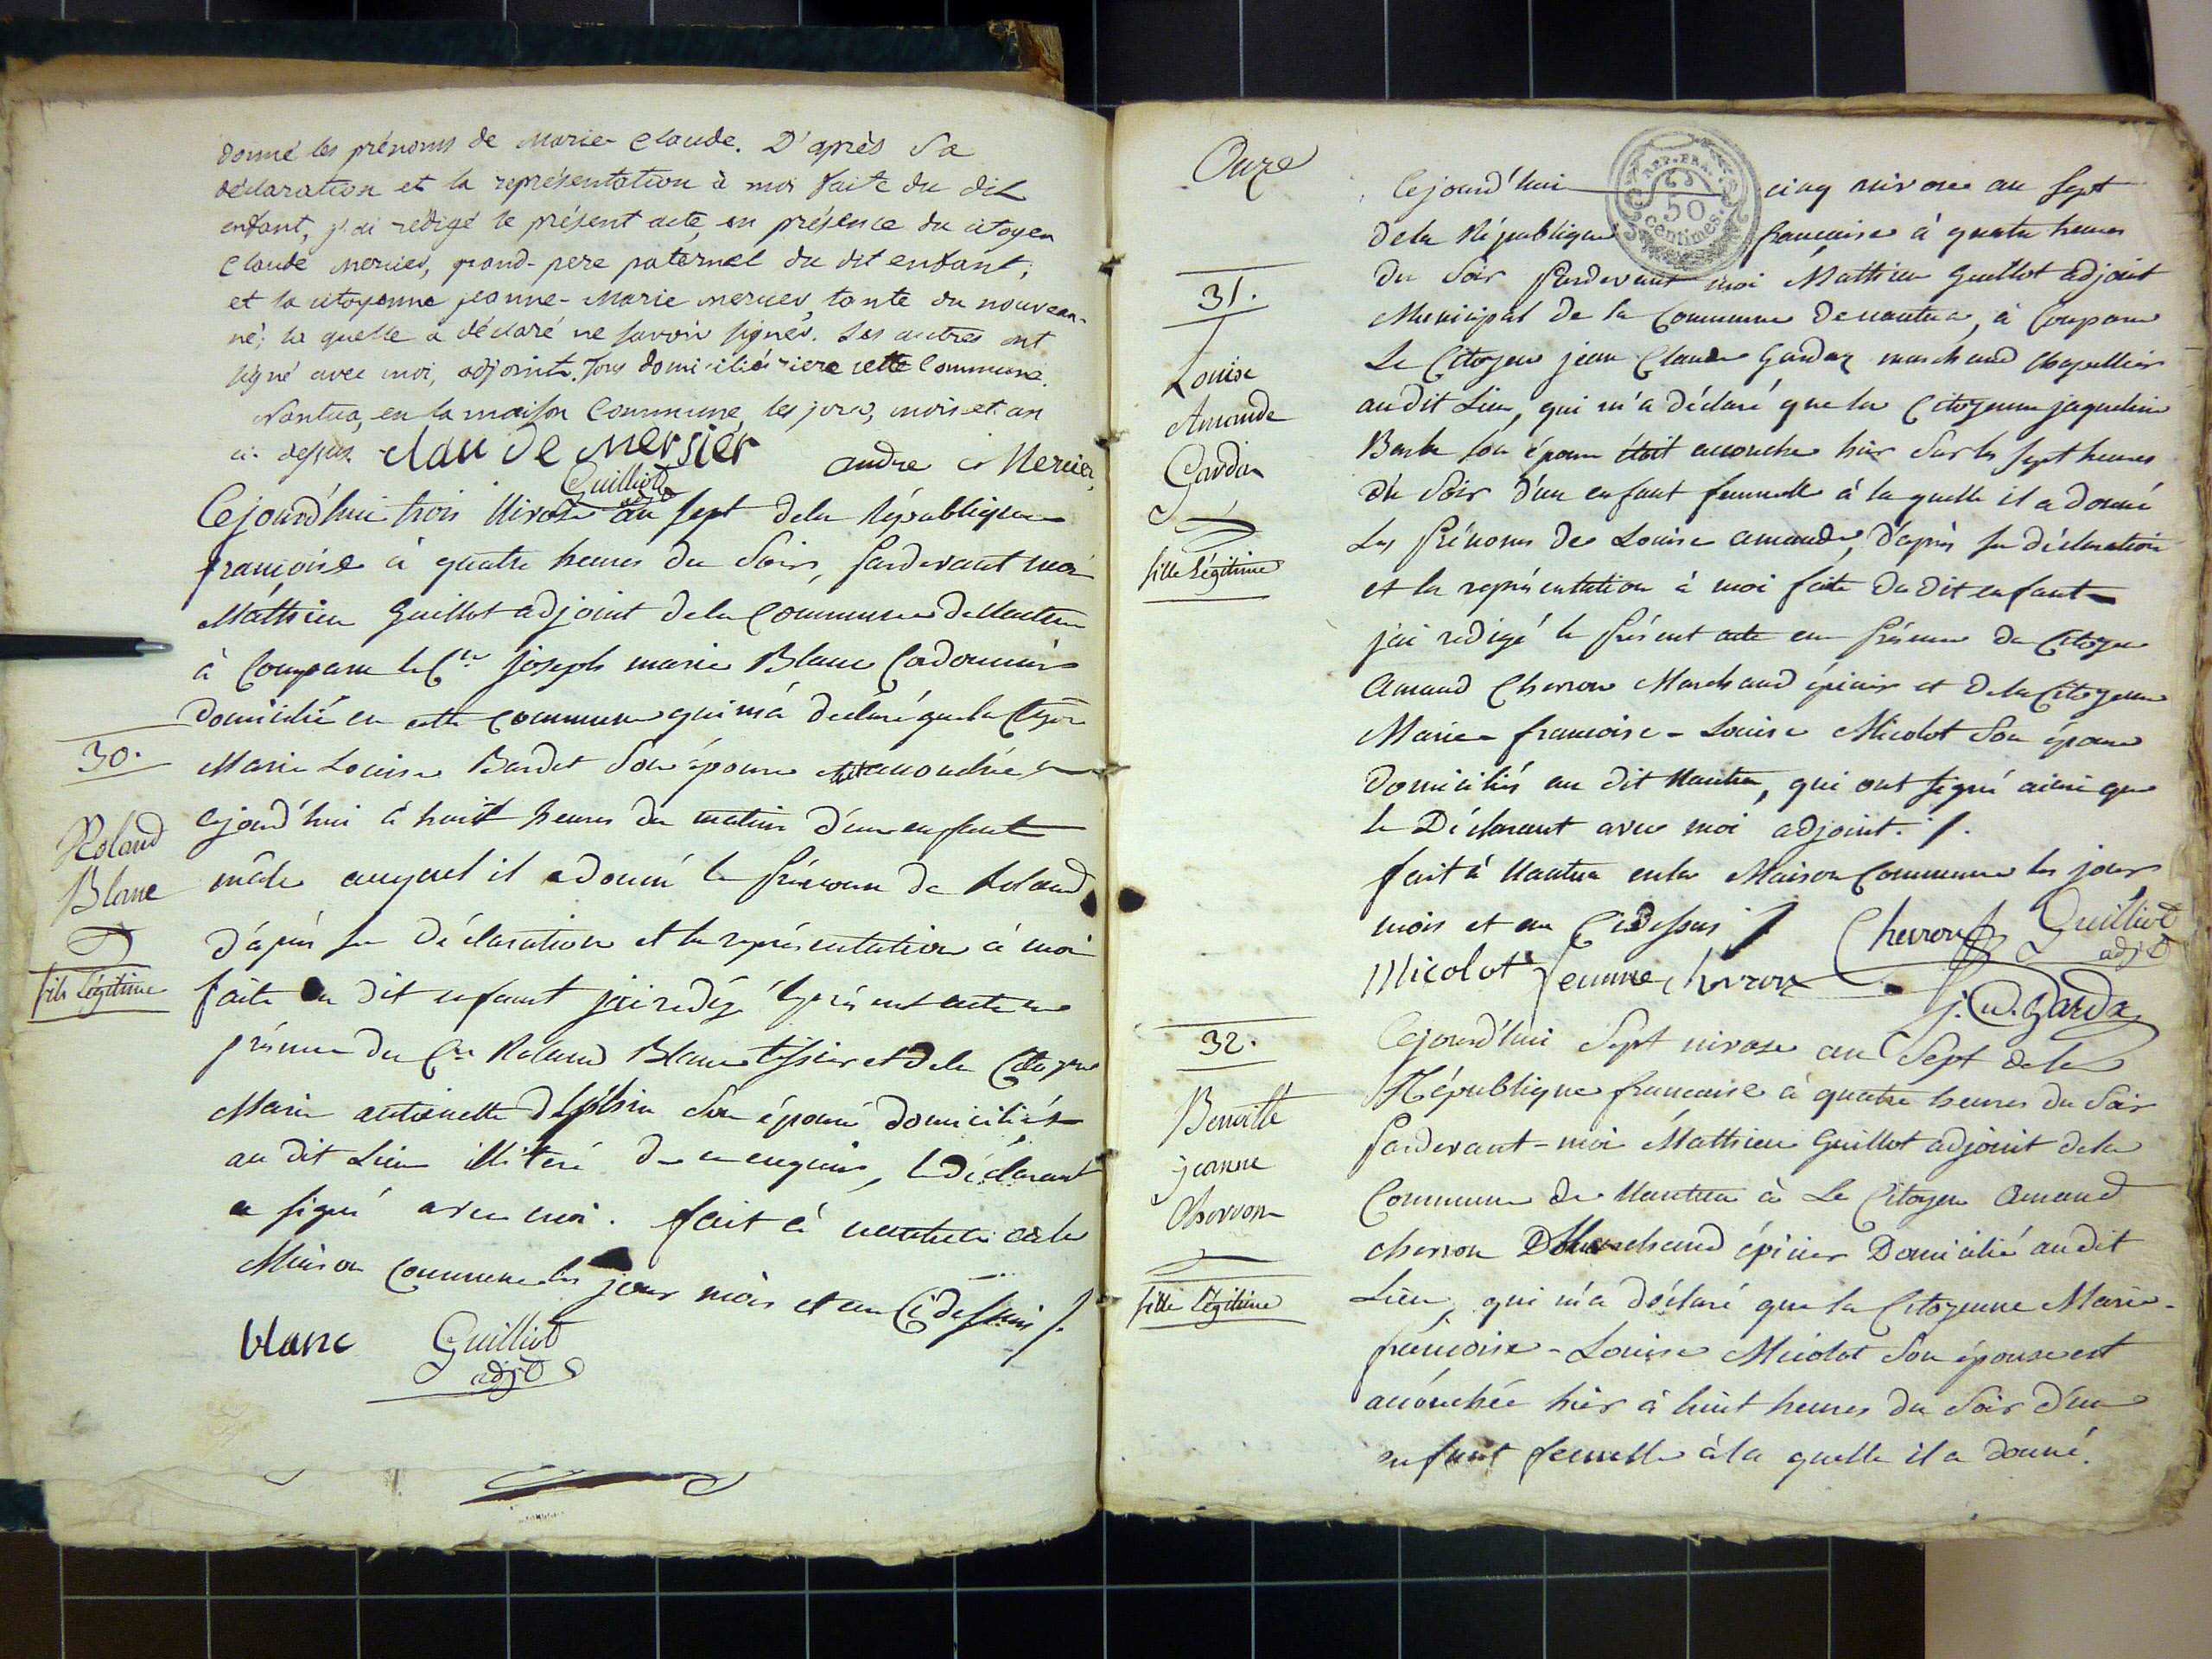 donné les prénoms de Marie Claude. D'après Sa
déclaration et la représentation à moi faite du dit
enfant, j'ai rédigé le présent acte, en présence du citoyen
Claude Mercier, grand-pere paternel du dit enfant;
et la citoyenne jeanne-Marie mercier, tante du nouveau-
né; la quelle a déclaré ne savoir signer. Les autres ont
signé avec moi, adjoint. Tous domiciliés riere cette Commune.
Nantua, en la maison Commune, les jour, mois et an
ci-dessus. Claude Mersier andre Mercier
Guilliot
adjt
Cejourd'hui trois Nivose an sept dela République
françoise à quatre heures du Soir, pardevant moi
Mathieu Guillot adjoint dela Commune de Nantua
à Comparu le Cen joseph marie Blanc Cordonnier
domicilié en cette commune qui m'a declaré que la Ctoyne
30.
Marie Louise Bardet Son épouse est accouchée
cejourd'hui à huit heures du matin d'un enfant
Roland
Blanc
fils légitime
mâle auquel il a donné le prénom de Roland
d'après sa déclaration et la représentation à moi
faite du dit enfant j'ai redigé le présent acte en
présence du Cen Roland Blanc tissier et dela Citoyne
Marie antoinette Son épouse domiciliés
au dit Lieu illiteré de ce enquis, le Déclarant
a signé avec moi. fait à nantua en la
Maison commune les jour mois et an Cidessus /.
blanc Guilliot
adjt
Onze
REP. FRA.
50
Centimes.
Cejourd'hui cinq nivose an Sept
dela République française à quatre heures
du Soir Pardevant moi Mathieu Guillot adjoint
31.
Louise
Amande
Gardaz
fille Légitime
Municipal de la Commune de nantua, à Comparu
Le Citoyen jean Claude Gardaz marchand Chapellier
audit Lieu, qui m'a déclaré que la Citoyenne jaqueline
Barbe son épouse étoit accouchée hier Sur les sept heures
du Soir d'un enfant femelle à la quelle il a donné
Les Prénoms de Louise amande, d'après sa déclaration
et la représentation à moi faite du dit enfant
j'ai redigé le présent acte en présence du Citoyen
Amand Cherron Marchand épicier et dela Citoyenne
Marie-francoise-Louise Micolot Son épouse
domiciliés au dit Nantua, qui ont signé ainsi que
le Déclarant avec moi adjoint. /.
fait à Nantua en la Maison Commune les jour
mois et an Cidessus / Cherron Guilliot
adjt
Micolot femme chérron
j. Cd. Gardaz
32.
Benoitte
jeanne
Cherron
fille légitime
Cejourd'hui Sept nivose an Sept dela
République francaise à quatre heures du Soir
Pardevant-moi Mathieu Guillot adjoint dela
Commune de Nantua à Le Citoyen Amand
cherron Marchand épicier Domicilié audit
Lieu, qui m'a déclaré que la Citoyenne Marie-
françoise-Louise Micolot Son épouse est
accouchée hier à huit heures du Soir d'un
enfant femelle à la quelle il a donné.